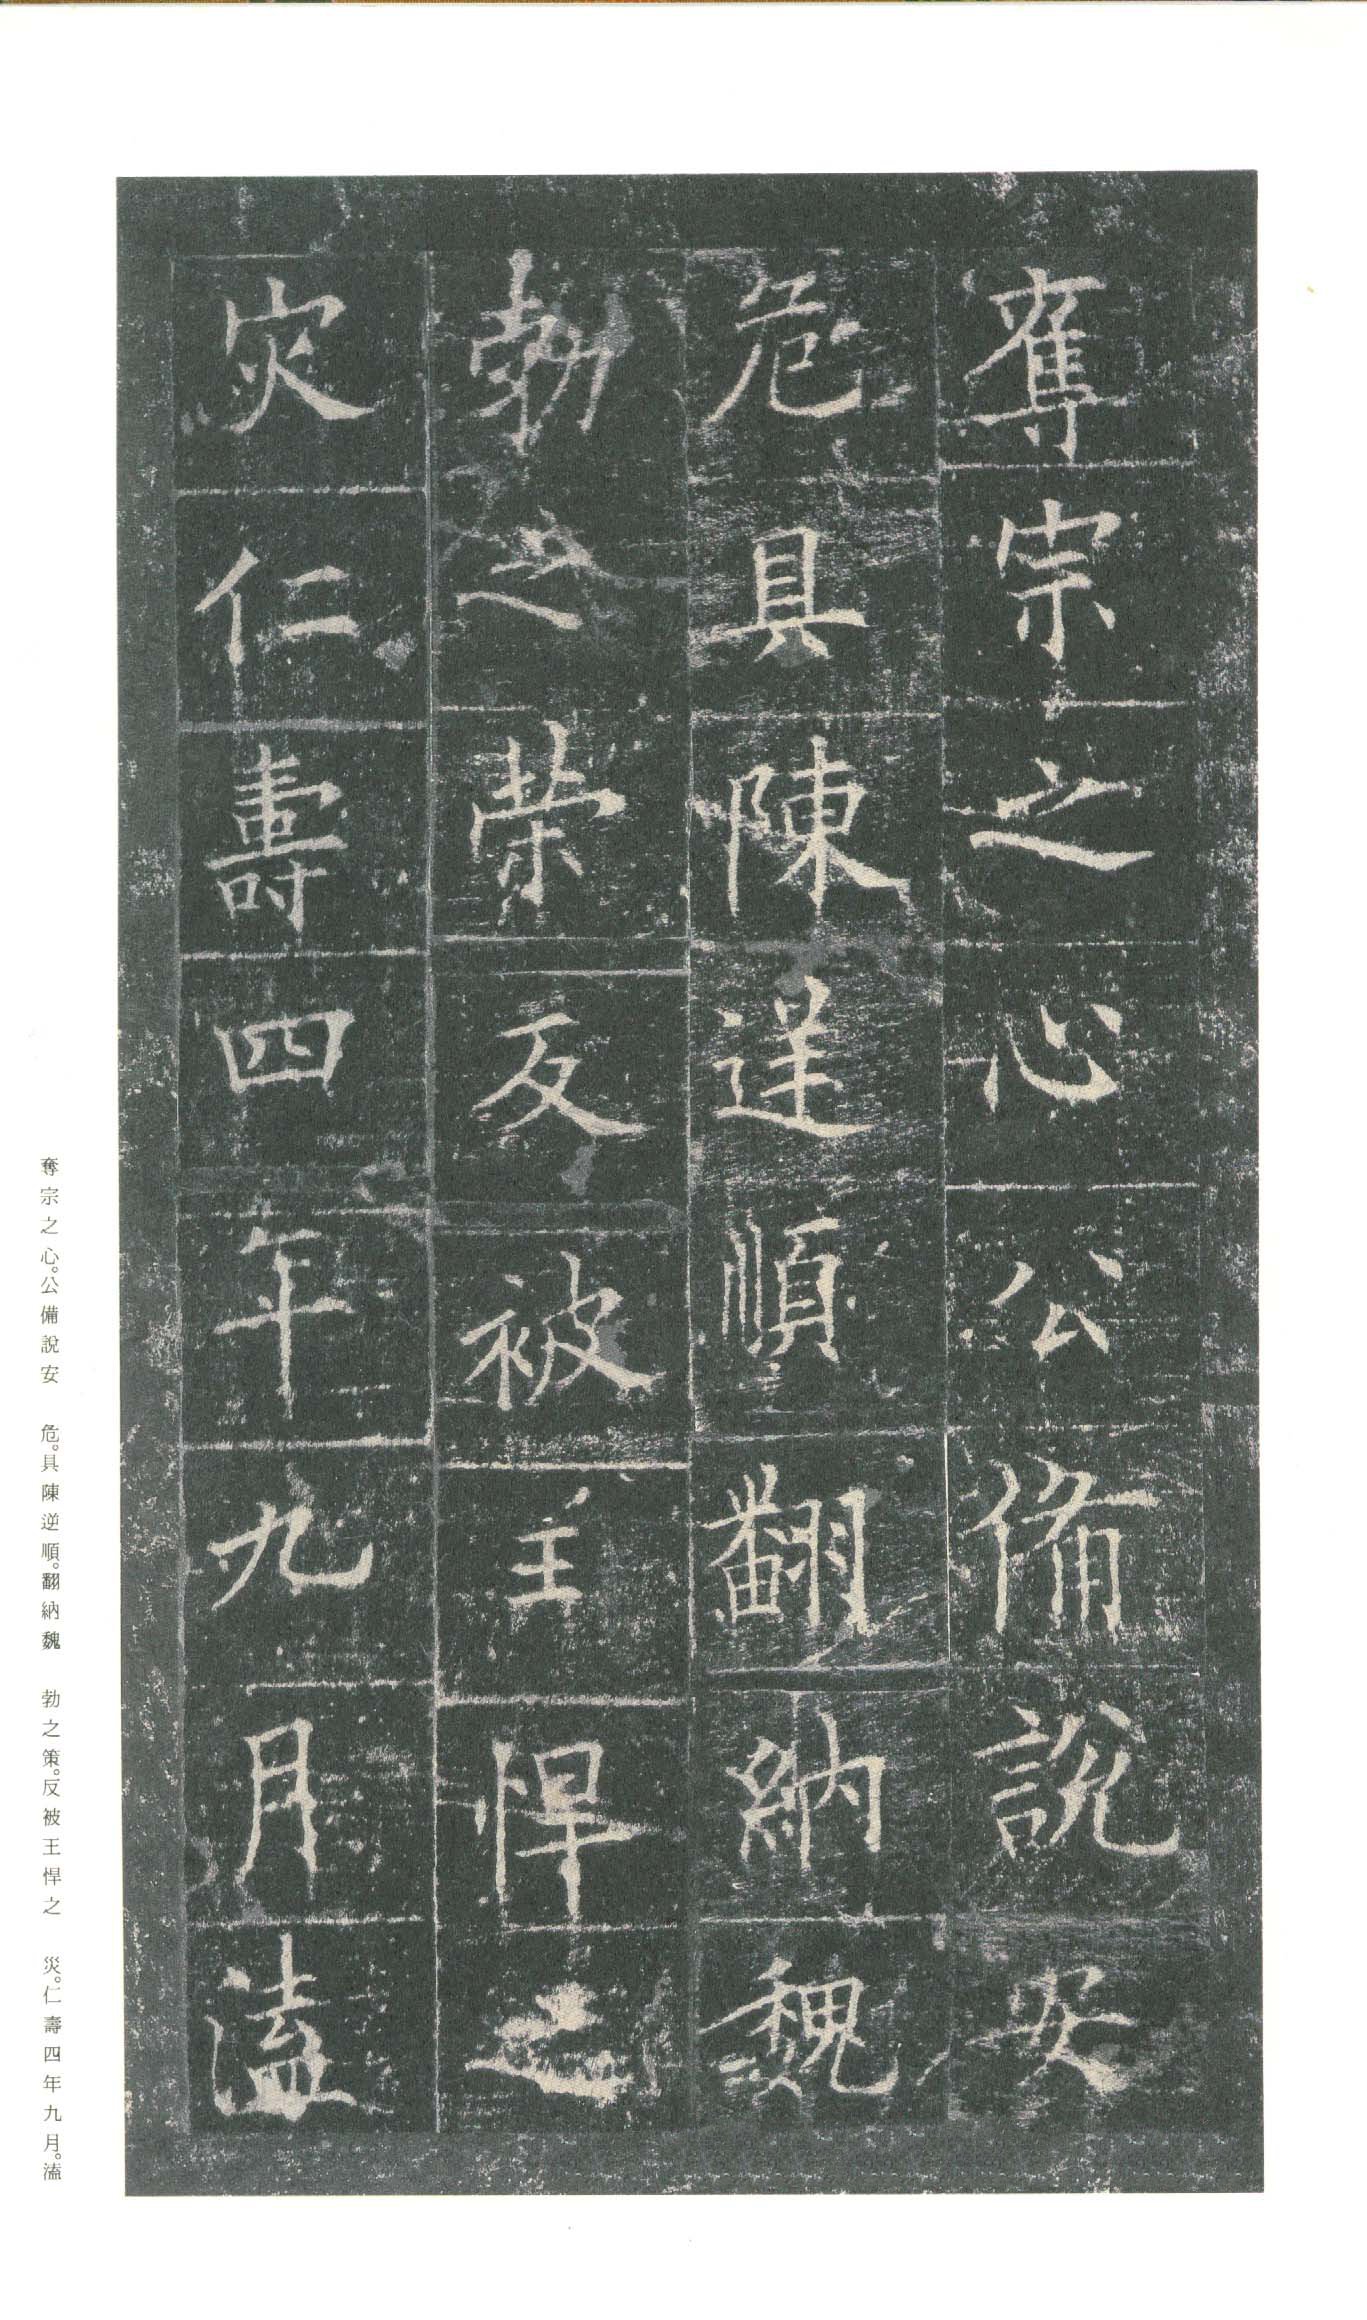 奪宗之心公備說安
危具陳逆順翻納魏
勃之榮反被王悍之
災仁壽四年九月溘
奪宗之心。公備說安　危。具陳逆順。翻納魏　勃之策。反被王悍之　災。仁壽四年九月。溘